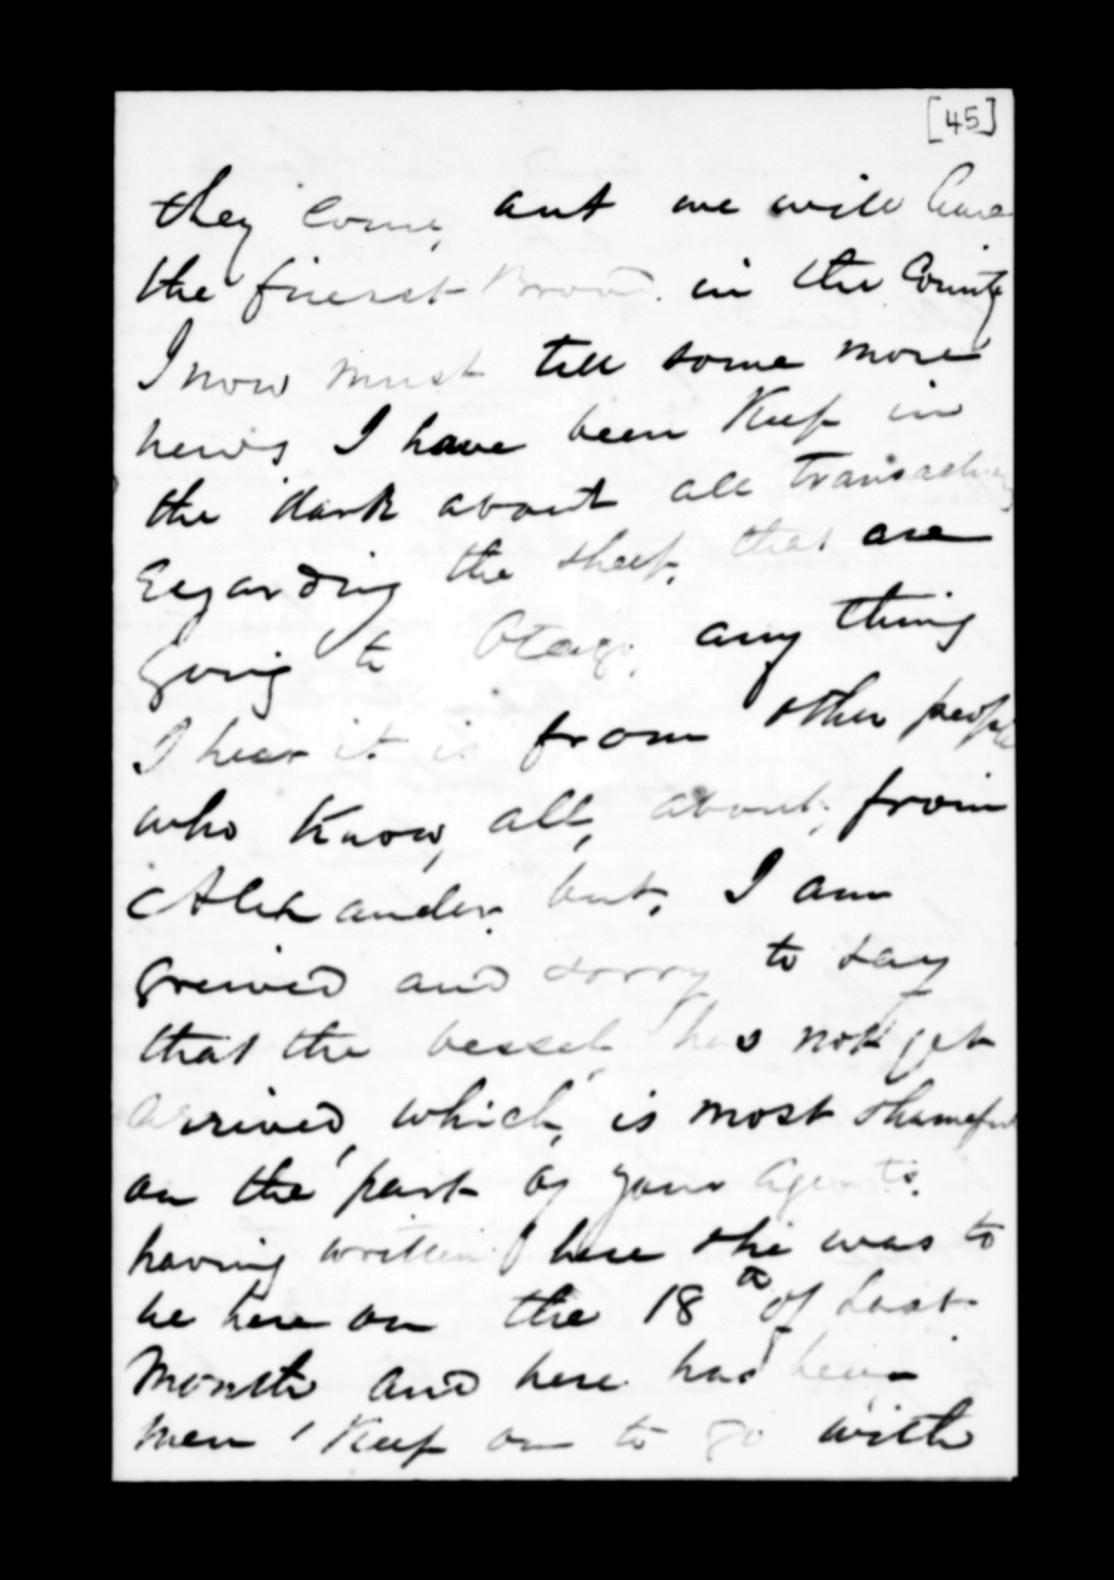 [45]
they come, ant we will have
the finerst Brood. in the County
I now must tell some more
news I have been Keep in
the dark about all transacting
Regarding the sheep. that are
going to Otago, any thing
I hear it is from other people
who Know, all, about, from
Alexander. but, I am
Greived and sorry to say
that the vessel has not yet
arrived, which, is most shameful
on the part of your Agents.
having written here she was to
be here on the 18th of Last
Month and here has been
men Keep on to go with